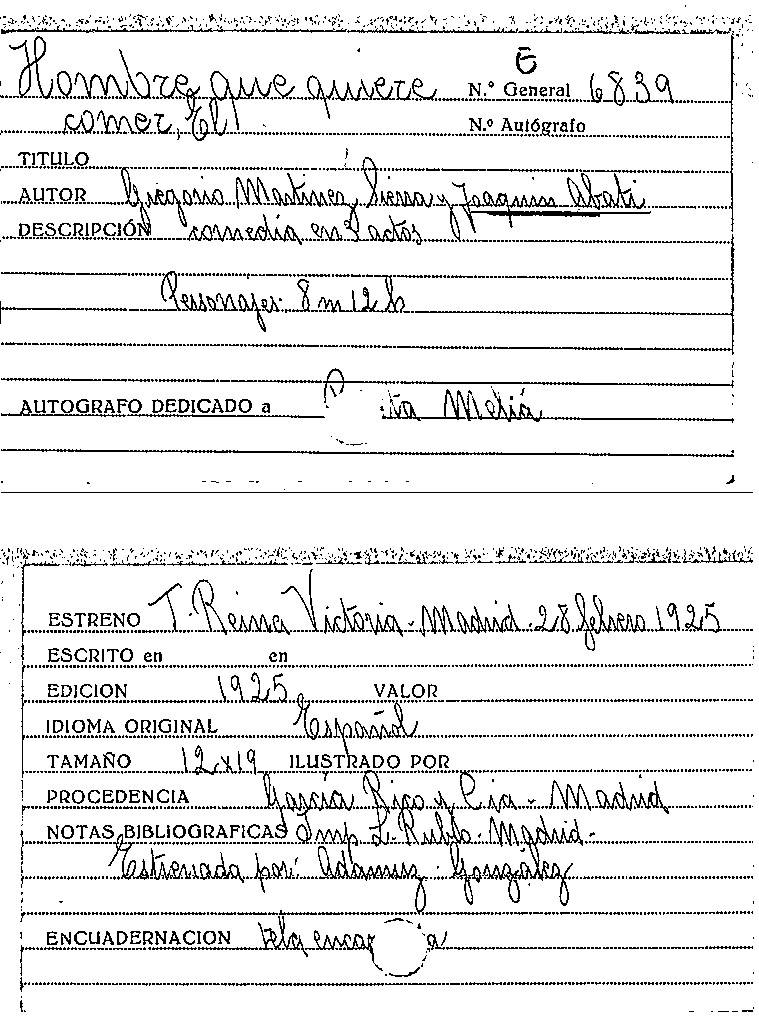 E
Hombre que quiere N.º General 6839
comer, El N.º Autógrafo
TITULO
AUTOR Gregorio Martinez Sierra y Joaquin Abati
DESCRIPCIÓN comedia en 3 actos
Personajes: 8 m 12 h
AUTOGRAFO DEDICADO a Meliá
ESTRENO T. Reina Victoria - Madrid - 28 febrero 1925
ESCRITO en en
EDICION 1925 VALOR
IDIOMA ORIGINAL Español
TAMAÑO 12x19 ILUSTRADO POR
PROCEDENCIA García Rico y Cia - Madrid
NOTAS BIBLIOGRAFICAS Imp. L. Rubio - Madrid -
Estrenada por: Adamuz - González
ENCUADERNACION tela